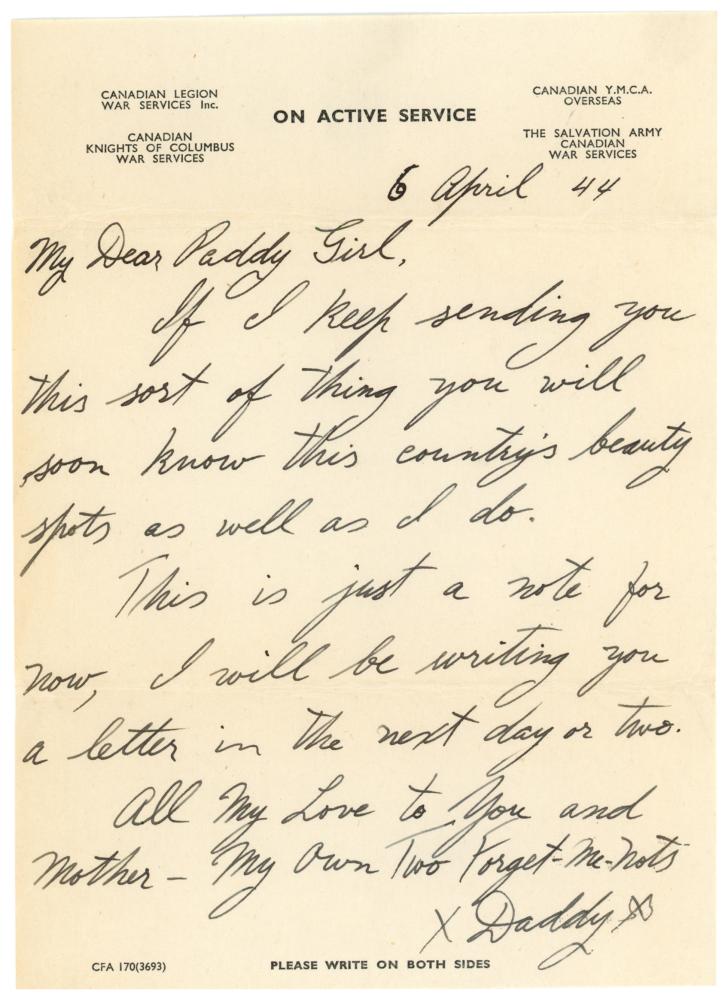 CANADIAN LEGION
WAR SERVICES Inc.
CANADIAN
KNIGHTS OF COLUMBUS
WAR SERVICES
ON ACTIVE SERVICE
CANADIAN Y.M.C.A.
OVERSEAS
THE SALVATION ARMY
CANADIAN
WAR SERVICES
6 April 44
My Dear Paddy Girl,
If I keep sending you
this sort of thing you will
soon know this country's beauty
spots as well as I do.
This is just a note for
now, I will be writing you
a letter in the next day or two.
All My Love to You and
Mother – My Own Two Forget-Me-Nots
X Daddy X
CFA 170(3693)
PLEASE WRITE ON BOTH SIDES